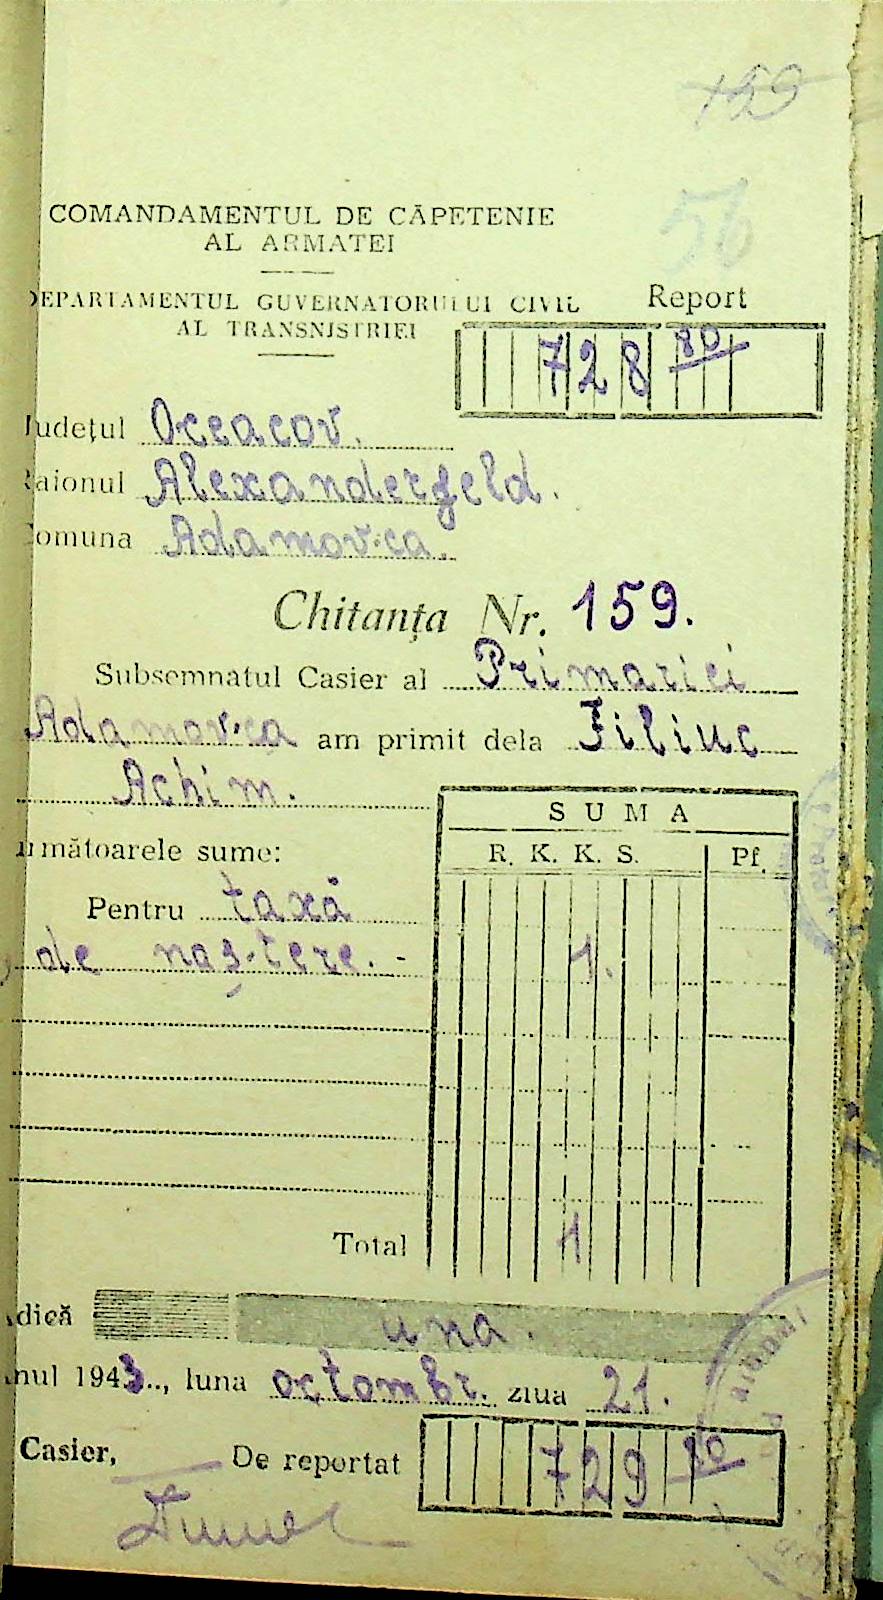 159
56
COMANDAMENTUL DE CĂPETENIE
AL ARMATEI
DEPARTAMENTUL GUVERNATORULUI CIVIL
AL TRANSNISTRIEI
Report
728 80
Județul Oceacov.
Raionul Alexanderfeld.
Comuna Adamovca.
Chitanța Nr. 159.
Subsemnatul Casier al Primariei
Adamovca am primit dela Filiuc
Achim.
următoarele sume:
SUMA
R. K. K. S. Pf.
Pentru taxă
de naștere. - 1.
Total 1
Adică una.
Anul 1943., luna octombr. ziua 21.
Casier, De reportat 729 80